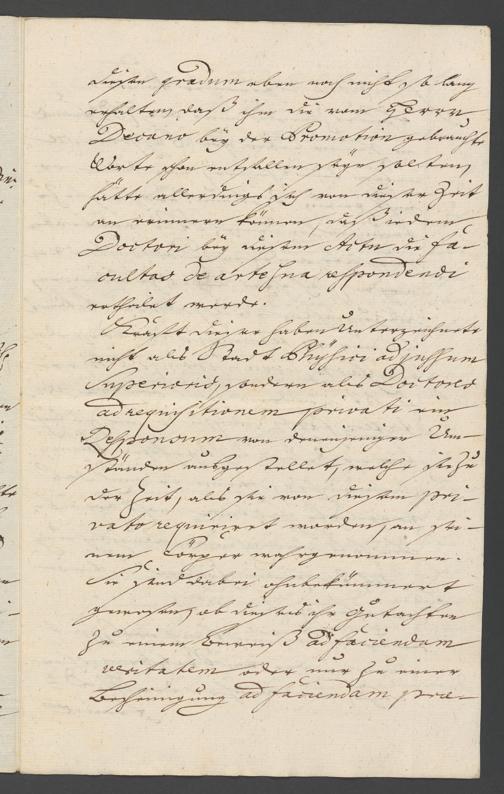 diesen gradum eben noch nicht so lang
erhalten, daß ihm die vom Herrn
Decano bey der Promotion gebrauchte
Worte schon entfallen seyn solten,
hätte allerdings sich von dieser Zeit
an erinnern können, daß jedem
Doctori bey diesem Actu die fa-
cultas de arte sua respondendi
ertheilet werde.
Krafft dieser haben Unterzeichnete
nicht als Stadt Physici ad jussum
Superioris, sondern als Doctores
ad requisitionem privati ein
Responsum von denenjenigen Um-
ständen ausgestellet, welche sie zu
der Zeit, als sie von diesem pri-
vato requiriret worden, an sei-
nem Cörper wahrgenommen.
Sie sind dabei ohnbekümmert
gewesen, ob dieses ihr Gutachten
zu einem Beweiß ad faciendam
veritatem oder nur zu einer
Bescheinigung ad faciendam præ-